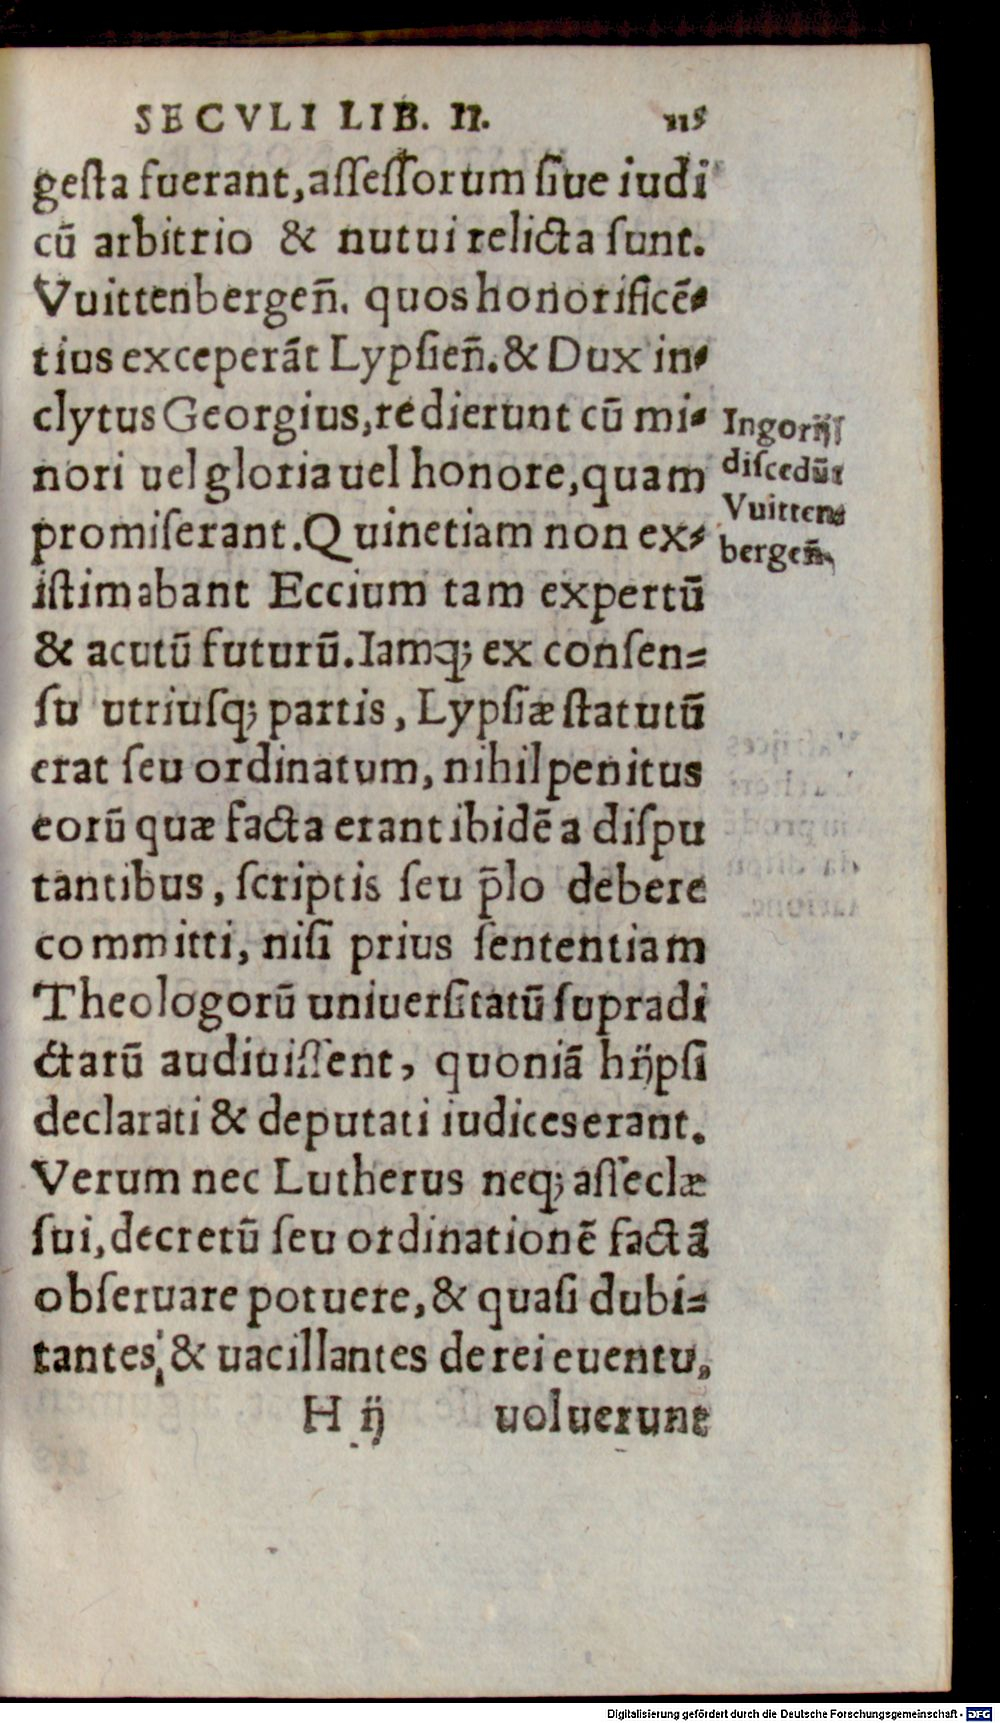 SECVLI LIB. II. 115
gesta fuerant, assessorum siue iudi
cū arbitrio & nutui relicta sunt.
Vuittenbergeñ. quos honorificē-
tius exceperāt Lypsieñ. & Dux in-
clytus Georgius, redierunt cū mi-
nori uel gloria uel honore, quam
promiserant. Quinetiam non ex-
istimabant Eccium tam expertū
& acutū futurū. Iamq; ex consen-
su utriusq; partis, Lypsiæ statutū
erat seu ordinatum, nihil penitus
eorū quæ facta erant ibidē a dispu
tantibus, scriptis seu p̄lo debere
committi, nisi prius sententiam
Theologorū uniuersitatū supradi
ctarū audiuissent, quoniā hijpsi
declarati & deputati iudices erant.
Verum nec Lutherus neq; asseclæ
sui, decretū seu ordinationē factā
obseruare potuere, & quasi dubi-
tantes, & uacillantes de rei euentu,
H ij uoluerunt
Ingorijs
discedūt
Vuitten-
bergeñ.
Digitalisierung gefördert durch die Deutsche Forschungsgemeinschaft - DFG